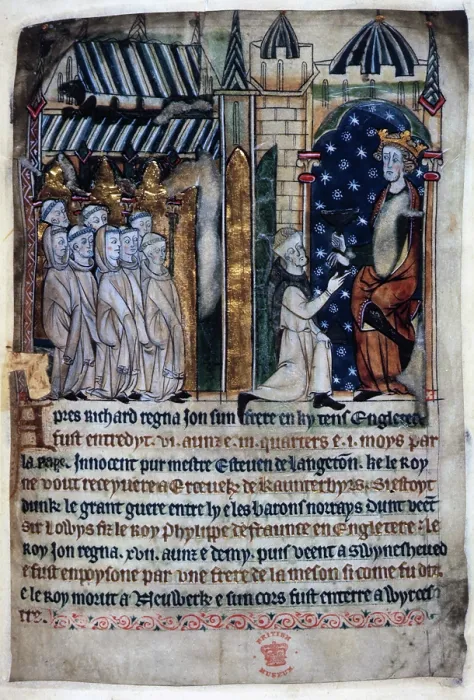 Apres Richard regna Jon sun frere en ky tens Engletere
fust entredyt. vi. aunz e .iii. quarters e .i. moys par
la Pape. Innocent pur mestre Esteuen de Langeton. ke le Roy
ne vout receyuere a Erceuek de Kaunterbyrs. Si estoyt
dunk le grant guere entre ly e les barons norrays dunt veent
Sir Lowys fiz le Roy Phylippe de fraunce en Engletere. Le
Roy Jon regna. xvii. aunz e demy. puis veent a Swynesheued
e fust enpoysone par vne frere de la meson si come fu dit.
e le Roy morut a Neuwerk e sun cors fust enterre a Wyrces
tre.
BRITISH
MUSEUM